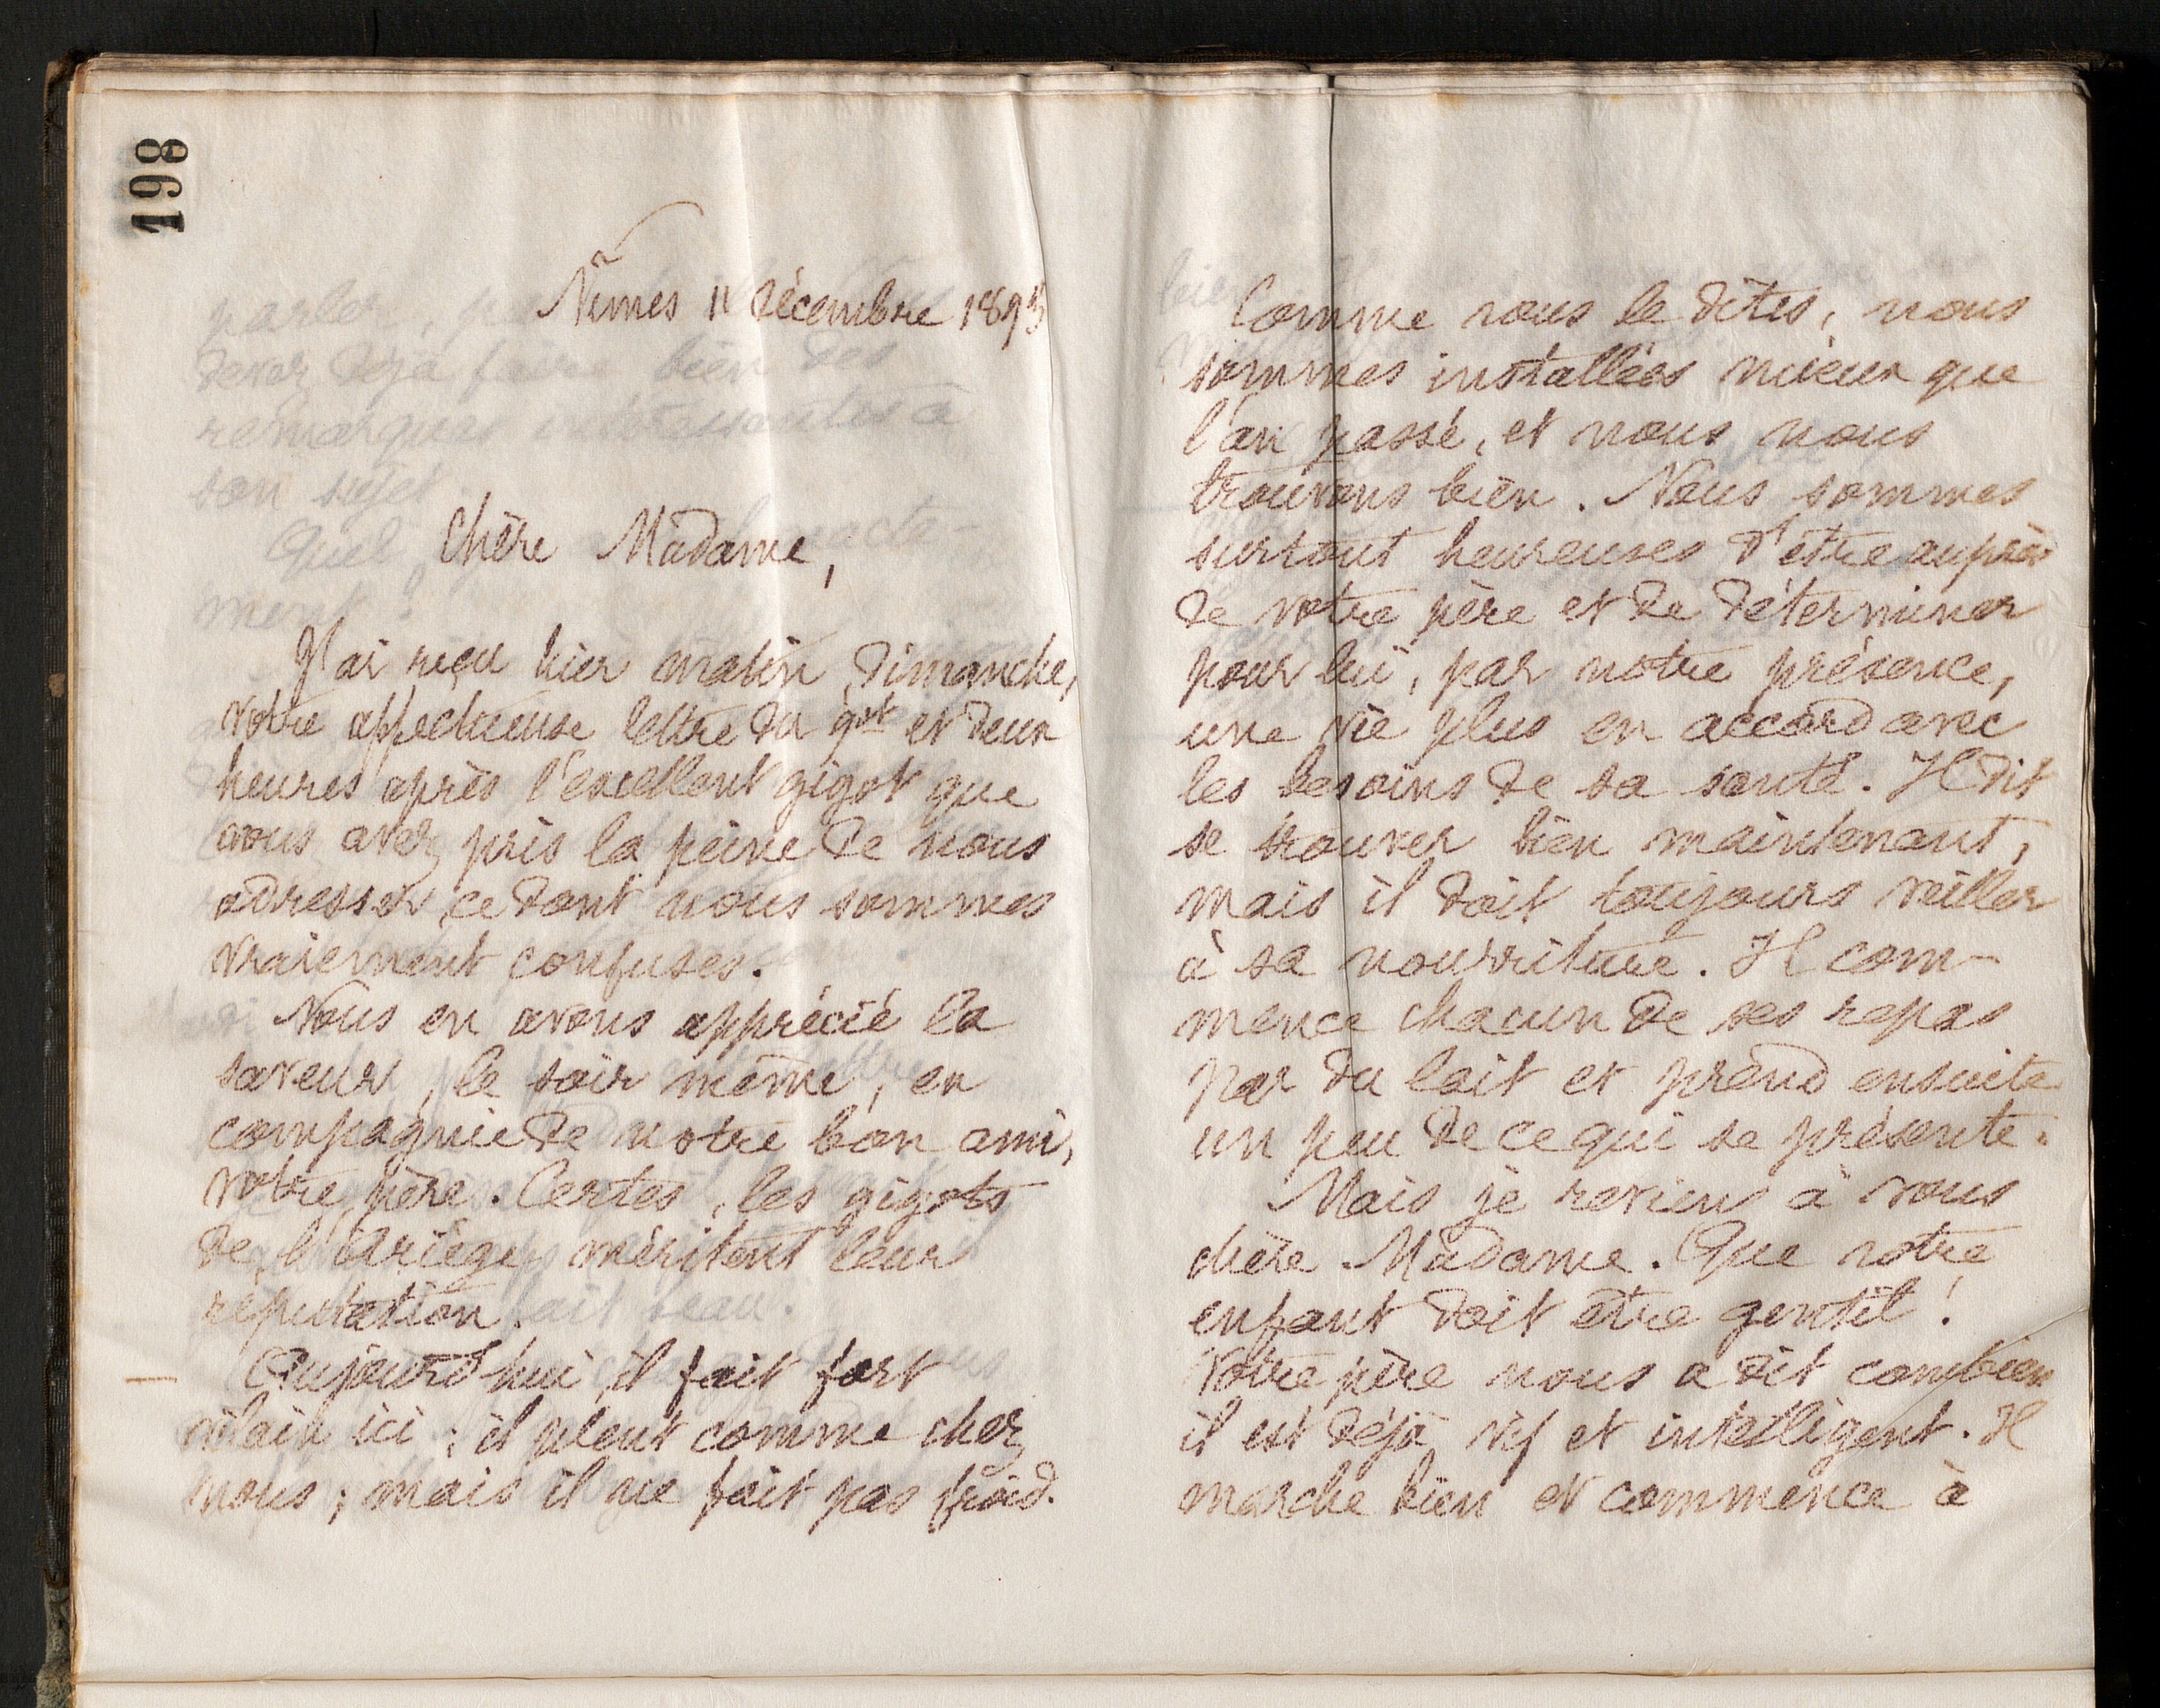 198
Nîmes 11 Décembre 1893
Chère Madame,
J'ai reçu hier matin, Dimanche,
votre affectueuse lettre du 9bre et deux
heures après l'excellent gigot que
vous avez pris la peine de nous
adresser, ce dont nous sommes
vraiement confuses.
Nous en avons apprécié la
saveur, le soir même, en
compagnie de notre bon ami,
votre père. Certes, les gigots
de l'Ariège méritent leur
réputation.
Aujourd'hui, il fait fort
vilain ici ; il pleut comme chez
vous ; mais il ne fait pas froid.
Comme vous le dites, nous
sommes installées mieux que
l'an passé, et nous nous
trouvons bien. Nous sommes
surtout heureuses d'être auprès
de votre père et de déterminer
pour lui, par notre présence,
une vie plus en accord avec
les besoins de sa santé. Il dit
se trouver bien maintenant,
mais il doit toujours veiller
à sa nourriture. Il com-
mence chacun de ses repas
par du lait et prend ensuite
un peu de ce qui se présente.
Mais je reviens à vous
chère Madame. Que votre
enfant doit être gentil !
Votre père nous a dit combien
il est déjà vif et intelligent. Il
marche bien et commence à